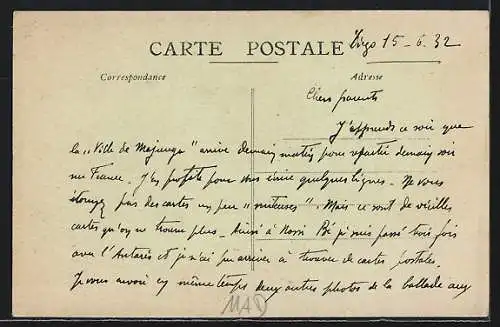 CARTE POSTALE
Diego 15-6.32
Correspondance
Adresse
Chers parents
J'apprends ce soir que
la "Ville de Majunga" arrive demain matin pour repartir demain soir
sur France. J'en profite pour vous écrire quelques lignes. Ne vous
étonnez pas des cartes un peu "vieilles". Mais ce sont de vieilles
cartes qu'on ne trouve plus. Ainsi à Nossi Bé je suis passé trois fois
avec l'Antarès et je n'ai pu arriver à trouver de cartes postales.
Je vous envoie en même temps deux autres photos de la ballade aux
MAD